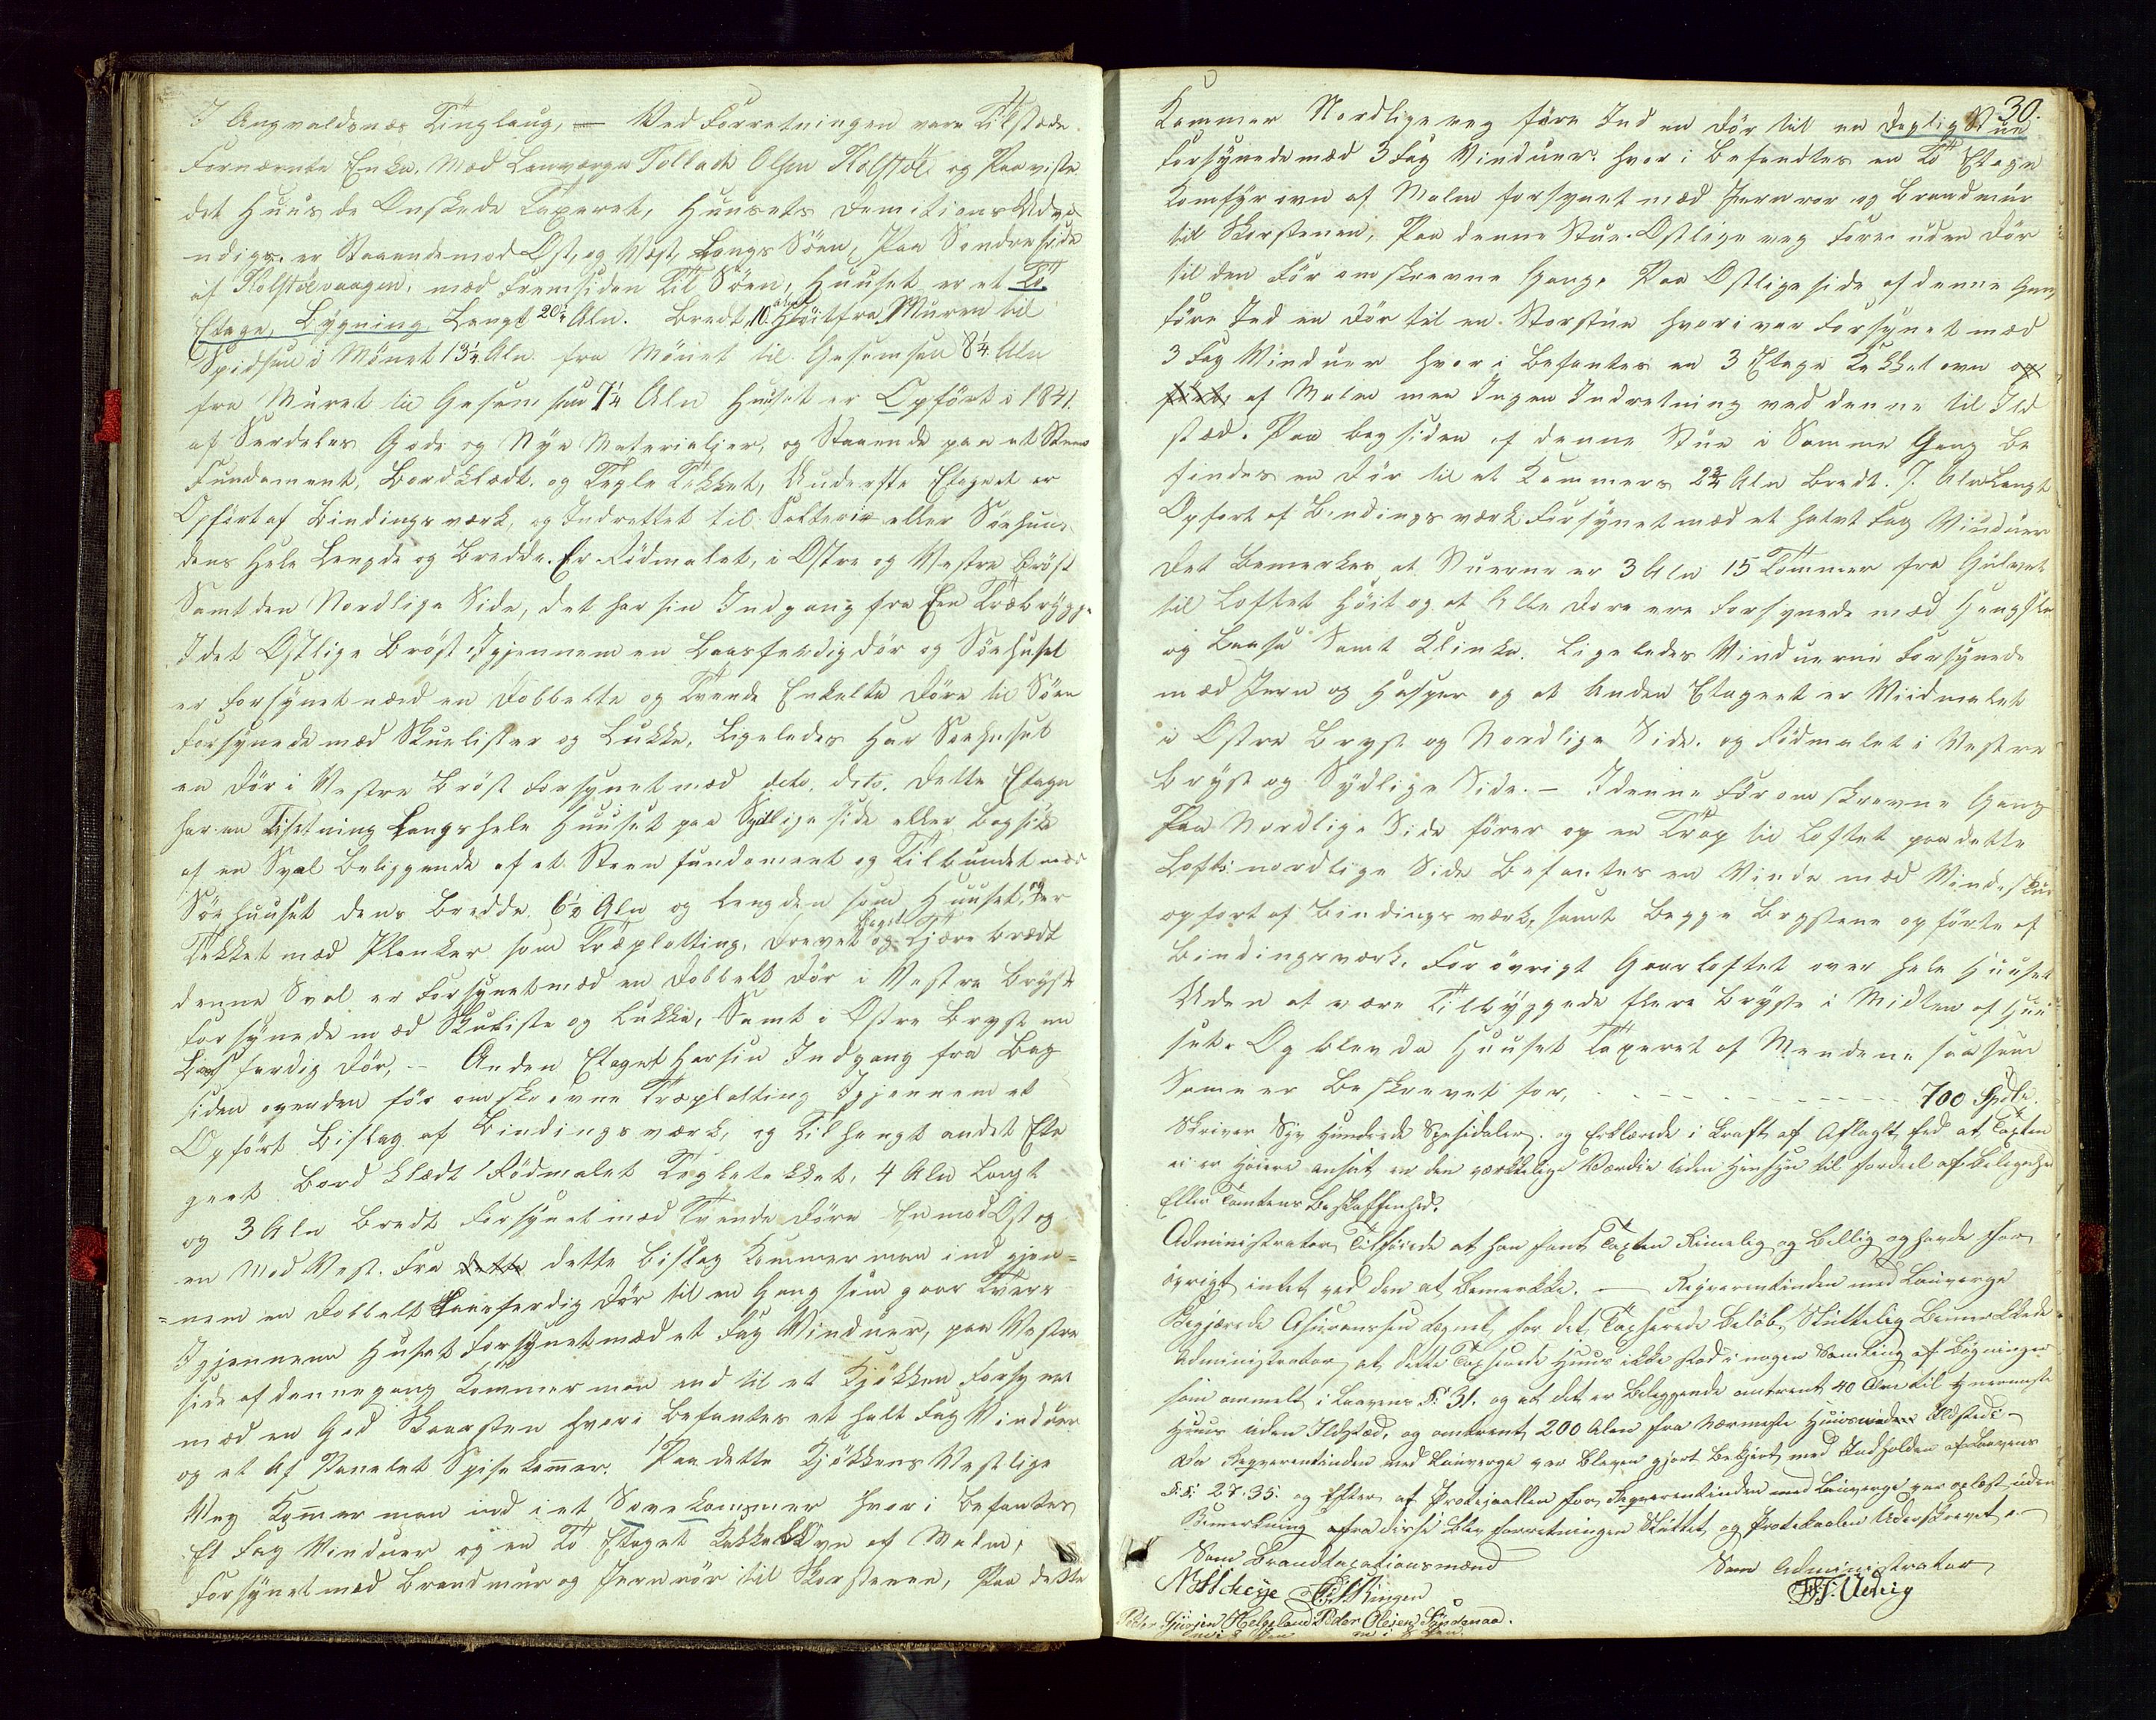 I Augvaldsnæs Tinglaug, — Ved Forretningen vare Tilstæde
Fornævnte Enke, Med Lauværge Tollach Olsen Kolstöe og Paaviste
det Huus de Ønskede Taxeret, Huusets Demitions Udve
ndige. er Staaende mod Ost, og Vest, Langs Söen, Paa Söndre Side
af Kolstöevaagen, med Fremsiden Til Söen, Huuset er et To
Etage, Bygning Langt 20½ Aln. Bredt, 10. alen Höit fra Muren til
Spidsen i Mönet 13¼ Aln fra Mönet til Gesemsen 8¼ Aln
fra Muret til Gesemsen 7¼ Aln Huuset er Opfört i 1841.
af Serdeles Gode og Nye Materialier, og Staaende paa et Steen
Fundament, Bordklædt, og Tegle Tekket, Underste Etaget er
Opfört af Bindingsværk, og Indrettet til Salterie eller Söehuus
dens Hele Lengde og Bredde. Er Rödmalet, i Ostre og Vestre Bröst
Samt den Nordlige Side, det har sin Indgang fra Een Træbrygge
I det Ostlige Bröst, Igjennem en Laasferdig dör og Söehuset
er forsynet med en Dobbelte og Tvende Enkelte Döre til Söen
Forsynede med Skurlister og Lukke, Ligeledes Har Söehuset
en Dör i Vestre Bröst Forsynet med deto. deto. Dette Etage
har en Tilsetning Langs hele Huuset paa Sydlige Side eller Bagside
af en Sval Beliggende af et Steen fundament og Tilbundet med
Söehuuset dens Bredde 6½ Aln og Lengden som Huuset, og er
Tekket med Planker som Træplatting, Drevet Beget og Tjære brædt
denne Sval er Forsynet med en Dobbelt Dör i Vestre Bryst
Forsynede med Skurliste og Lukke, Samt i Ostre Bryst en
Laasferdig Dör, — Anden Etaget Har sin Indgang fra Bag
siden over den för omskrevne Træplatting Igjennem et
Opfört Bislag af Bindingsværk, og Tilhengt andet Eta
geet Bord Klædt, Rödmalet Teglstekket, 4 Aln Langt
og 3 Aln Bredt Forsynet med Tvende Döre En mod Ost og
en Mod Vest. Fra dette dette Bislag Kommer man ind gjen=
=nem en Dobbelt Laasferdig Dör til en Gang som gaar Tvers
Igjennem Huset Forsynet med et Fag Vinduer, paa Vestre
side af denne gang Kommer man end til et Kjökken Forsynet
med en God Skorsten hvori Befantes et halt Fag Vinduer
og et Af Panelet Spisekamer. Paa dette Kjökkens Vestlige
Veg Komer man ind i et Sovekammer hvori Befantes
Et Fag Vinduer og en To Etaget Kakkelovn af Malm,
Forsynet med Brandmur og Jernrör til Skorstenen, Paa dette
30.
Kammer Nordlige veg före Ind en Dör til en Daglig Stue
Forsynede med 3 Fag Vinduer. hvor i Befandtes en To Etage
Komfyrovn af Malm forsynet med Jernror og Brandmur
til Skorstenen, Paa denne Stue Ostlige veg Förer uden Dör
til den För omskrevne Gang. Paa Ostlige side af denne Gang
före Ind en Dör til en Storstue hvori var Forsynet med
3 Fag Vinduer hvor i Befantes en 3 Etage Kakkelovn
af Malm men Ingen Indretning ved denne til Ild
sted. Paa bagsiden af denne Stue i Samme Gang be
findes en Dör til et Kammers 2¾ Aln Bredt. 7. Aln Langt
Opfört af Bindingsværk Forsynet med et halvt Fag Vinduer
Det Bemerkes at Stuerne er 3 Aln 15 Tommer fra Gulvet
til Loftet Höit og at Alle Döre ere Forsynede med Hengsler
og Laase Samt Klinke. Ligeledes Vinduerne Forsynede
med Jern og Hasper og at Anden Etageet er Viidmalet
i Ostre Bryst og Nordlige Side. og Rödmalet i Vestre
Bryst og Sydlige Side. — I denne För omskrevne Gang
Paa Nordlige Side förer op en Trap til Loftet paa dette
Lofts nordlige Side Befantes en Vinde med Vindeskuer
opfört af Bindingsværk, samt Begge Brystene opförte af
Bindingsværk. For övrigt Gaar Loftet over hele Huuset
Uden at være Tilbyggede flere Bryste i Midten af Huu
set. Og blev da Huuset Taxeret af Mendene saasom
Same er Beskrevet for, - - - - - - - - - - 700 Spdlr.
Skriver Syv Hundrede Spesidaler. og Erklærede i Kraft af Aflagt Eed at Taxten
ei er höiere ansat en den værkelige Værdie Uden Hensyn til fordeel af Beliggenhed
Eller Tomtens Beskaffenhed.
Administrator Tilföiede at han fant Taxten Rimelig og Billig og havde for
övrigt intet ved den at Bemerkke. — Reqverentinden med Lauverge
Begjærede Asuransen tegnet for det Taxerede Belöb. Sluttelig Bemerkkede
Administrator at dette Taxerede Huus ikke stod i nogen Samling af Bygninger
som ommelt i Laavens §: 31. og at det er Beliggende omtrent 40 Alne til nermeste
Huus uden Ildsted, og omtrent 200 Alen fra Nærmeste Huus med Ildstede —
Da Reqverentinden med Lauverge var bleven gjort Bekjent med Indholden af Laavens
§.§: 27. 35. og Efter at Protojaallen for Reqverentinden med Lauverge var oplest uden
Bemerkning fra disse blev forretningen Sluttet og Protokaalen Underskrevet. —
Som Brandtaxationsmænd
Som Administrator
Peder Olesen